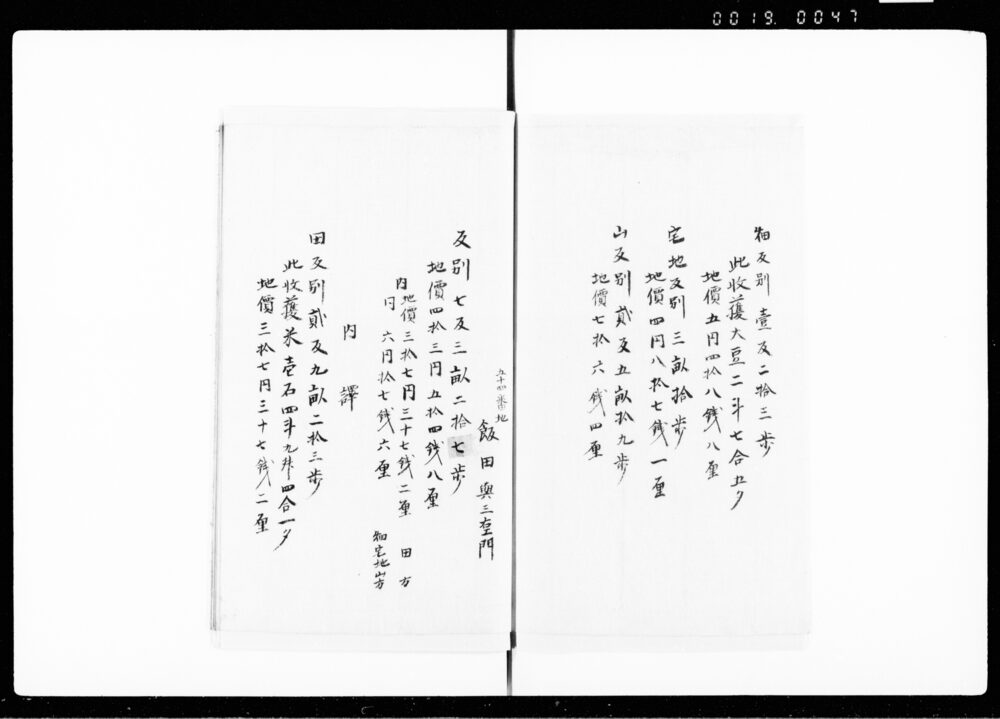 0019.0047
畑反别 壹反二拾三歩
此收穫大豆二斗七合五夕
地價五円四拾八銭八厘
宅地反别 三畝拾歩
地價四円八拾七銭一厘
山反别 貳反五畝拾九歩
地價七拾六銭四厘
五十四番地
飯田與三左門
反别 七反三畝二拾七歩
地價四拾三円五拾四銭八厘
内地價三拾七円三十七銭二厘 田方
同 六円拾七銭六厘 畑宅地山方
内譯
田反别貳反九畝二拾三歩
此收穫米壱石四斗九升四合一夕
地價三拾七円三十七銭二厘